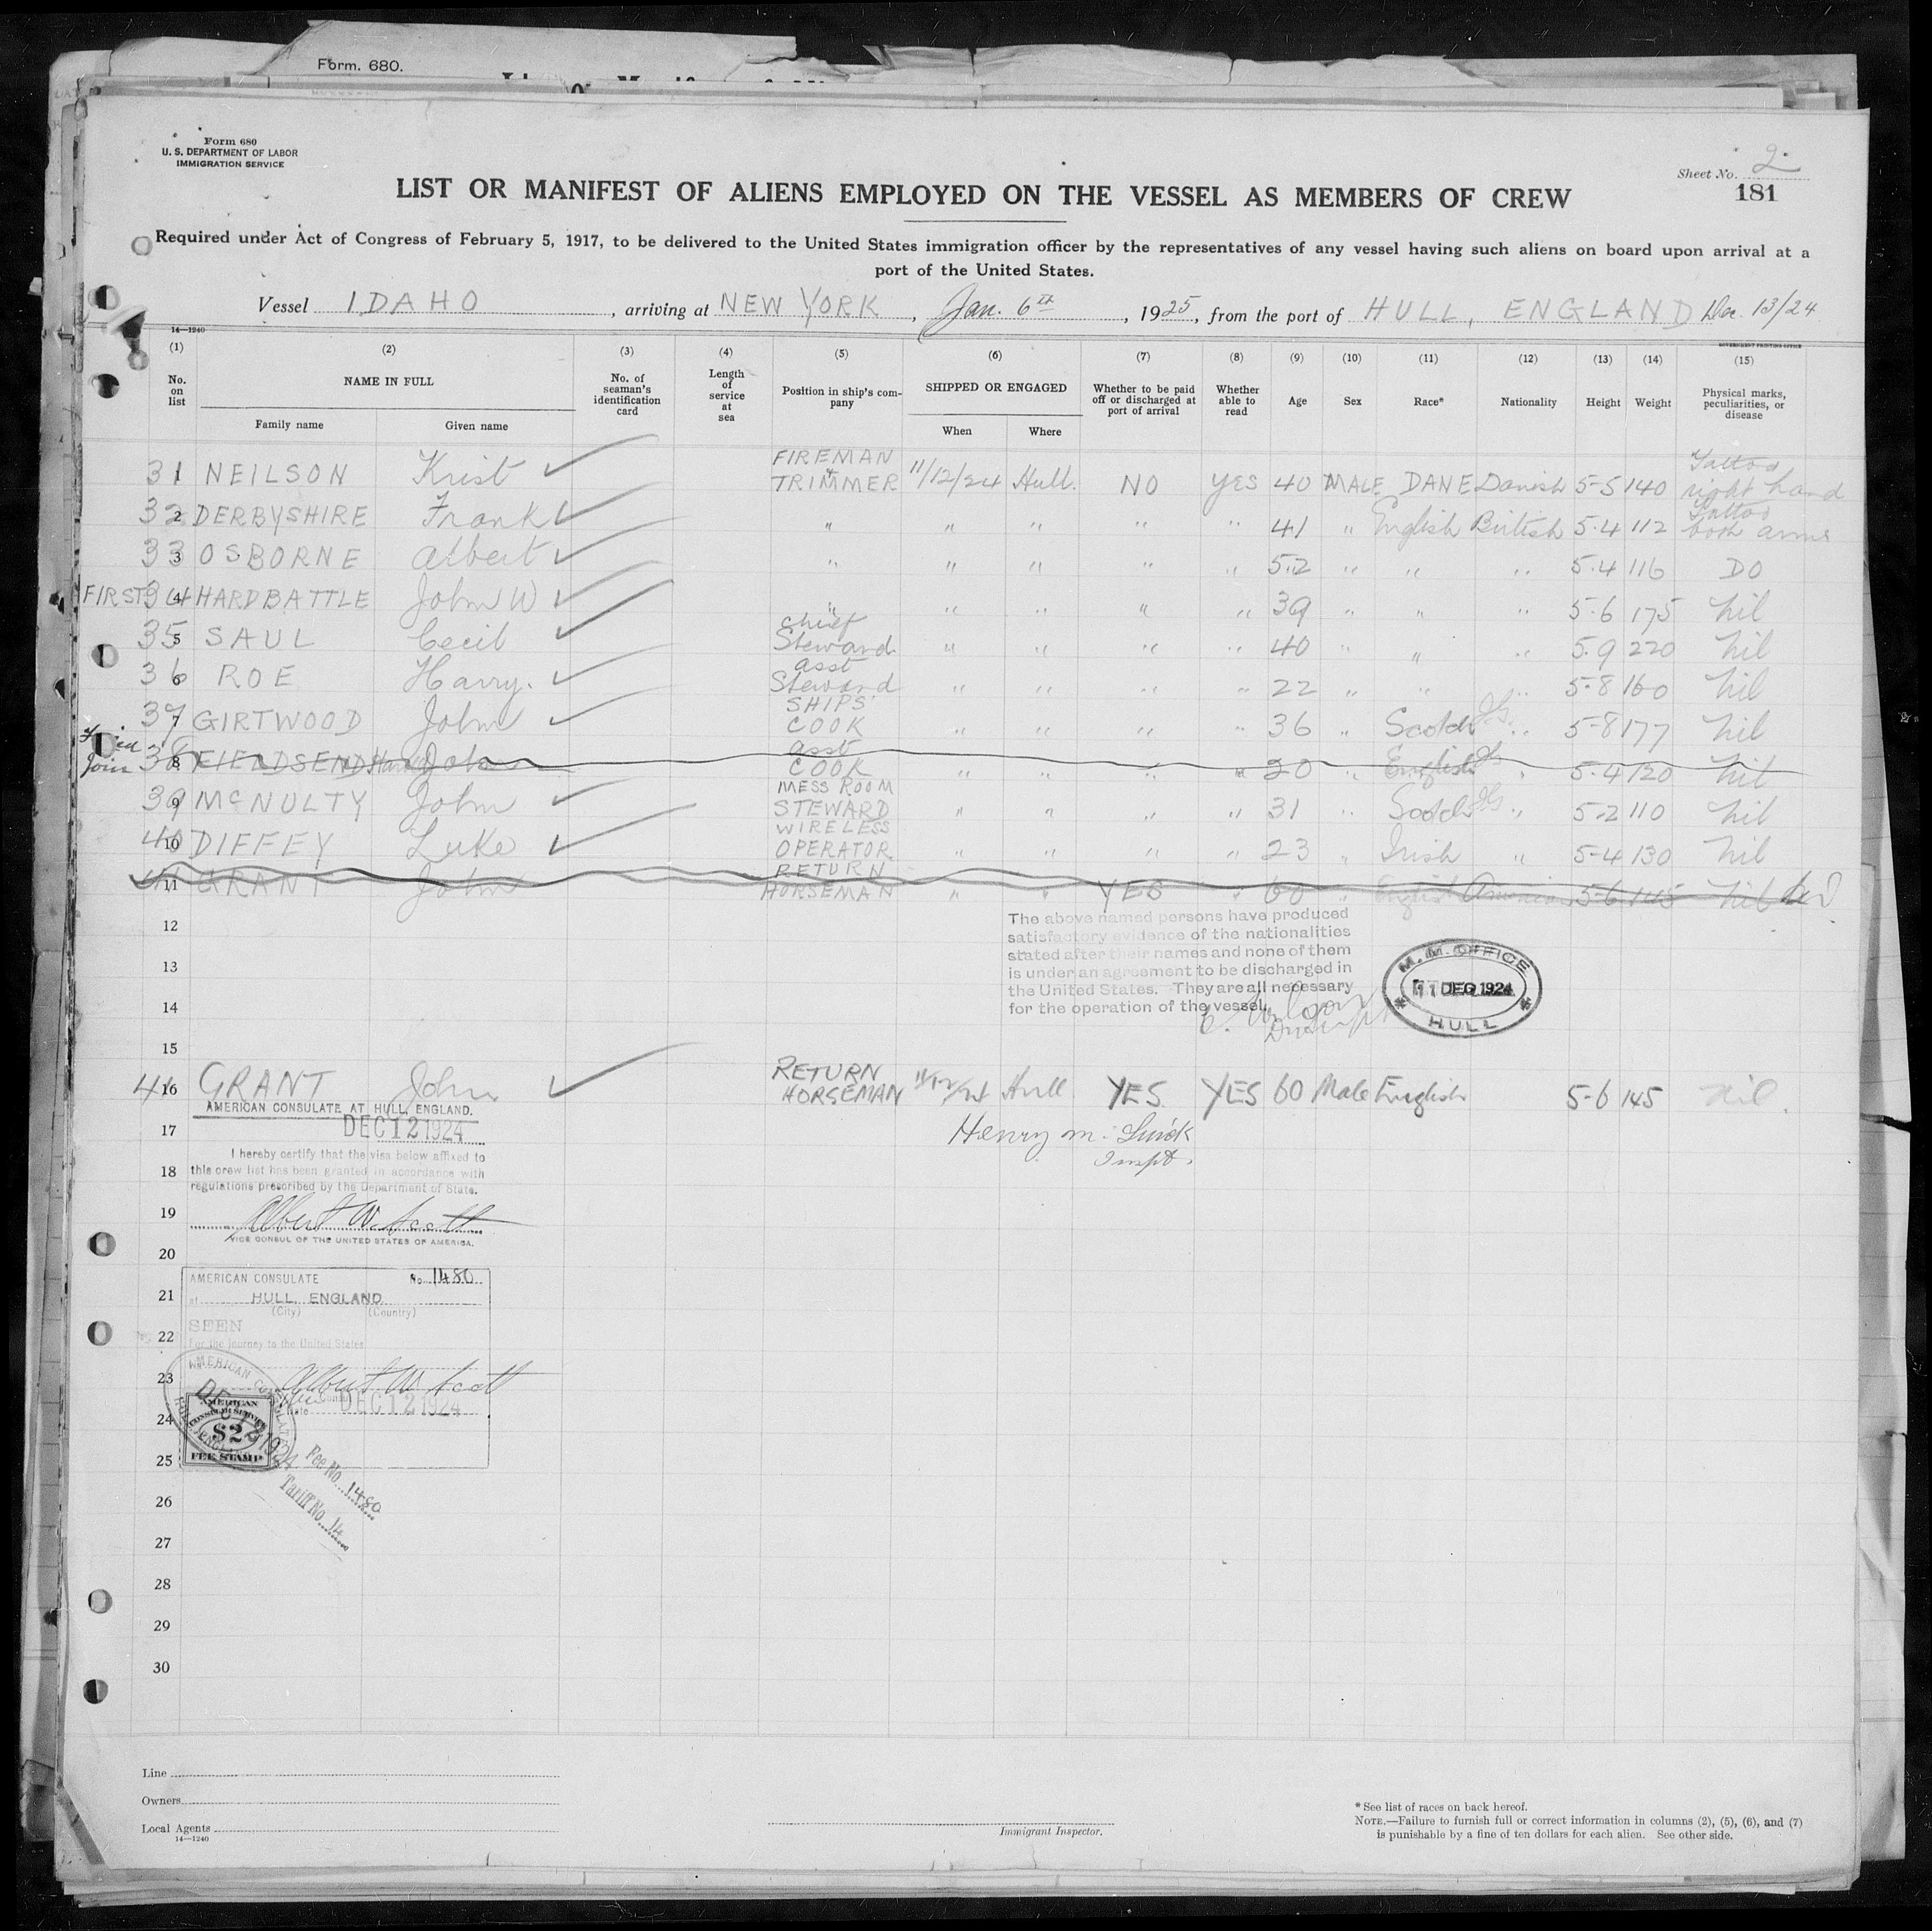 Form. 680.
Form 680
U. S. DEPARTMENT OF LABOR
IMMIGRATION SERVICE
Sheet No. 2
181
LIST OR MANIFEST OF ALIENS EMPLOYED ON THE VESSEL AS MEMBERS OF CREW
Required under Act of Congress of February 5, 1917, to be delivered to the United States immigration officer by the representatives of any vessel having such aliens on board upon arrival at a
port of the United States.
Vessel IDAHO, arriving at NEW YORK, Jan. 6th, 1925, from the port of HULL, ENGLAND Dec. 13/24
14—1240
GOVERNMENT PRINTING OFFICE
(1) (2) (3) (4) (5) (6) (7) (8) (9) (10) (11) (12) (13) (14) (15)
No. on list NAME IN FULL No. of seaman's identification card Length of service at sea Position in ship's company SHIPPED OR ENGAGED Whether to be paid off or discharged at port of arrival Whether able to read Age Sex Race* Nationality Height Weight Physical marks, peculiarities, or disease
Family name Given name When Where
31 1 NEILSON Krist ✓ FIREMAN & TRIMMER 11/12/24 Hull. NO YES 40 MALE DANE Danish 5-5 140 Tattoo right hand
32 2 DERBYSHIRE Frank ✓ " " " " " 41 " English British 5-4 112 Tattoo both arms
33 3 OSBORNE Albert ✓ " " " " " 52 " " " 5-4 116 DO
FIRST 34 4 HARDBATTLE John W ✓ " " " " " 39 " " " 5-6 175 Nil
35 5 SAUL Cecil ✓ Chief Steward " " " " 40 " " " 5-9 220 Nil
36 6 ROE Harry. ✓ Asst Steward " " " " 22 " " " 5-8 160 Nil
37 7 GIRTWOOD John ✓ SHIPS COOK " " " " 36 " Scotch " 5-8 177 Nil
Failed Join 38 8 FIELDSEND John Asst COOK " " " " 20 " English " 5-4 120 Nil
39 9 McNULTY John ✓ MESS ROOM STEWARD " " " " 31 " Scotch " 5-2 110 Nil
40 10 DIFFEY Luke ✓ WIRELESS OPERATOR " " " " 23 " Irish " 5-4 130 Nil
41 11 GRANT John RETURN HORSEMAN " " YES " 60 " English American 5-6 145 Nil
12
The above named persons have produced
satisfactory evidence of the nationalities
stated after their names and none of them
is under an agreement to be discharged in
the United States. They are all necessary
for the operation of the vessel.
M. M. OFFICE
11 DEC 1924
HULL
13
14
15
41 16 GRANT John ✓ RETURN HORSEMAN 11/12/24 Hull YES YES 60 Male English 5-6 145 Nil.
AMERICAN CONSULATE AT HULL, ENGLAND.
DEC 12 1924
17
Henry M. Luick
Inspt.
I hereby certify that the visa below affixed to
18
this crew list has been granted in accordance with
regulations prescribed by the Department of State.
19
Albert W. Scott
VICE CONSUL OF THE UNITED STATES OF AMERICA.
20
AMERICAN CONSULATE No. 1480
21
at HULL, ENGLAND
(City) (Country)
SEEN
22
For the journey to the United States
23
Albert W Scott
Date DEC 12 1924
AMERICAN CONSULATE
HULL, ENGLAND
DEC 12 1924
24
AMERICAN
CONSULAR SERVICE
$2
FEE STAMP
25
Fee No. 1480
Tariff No. 14
26
27
28
29
30
Line
Owners
Local Agents
14—1240
Immigrant Inspector.
* See list of races on back hereof.
NOTE.—Failure to furnish full or correct information in columns (2), (5), (6), and (7)
is punishable by a fine of ten dollars for each alien. See other side.